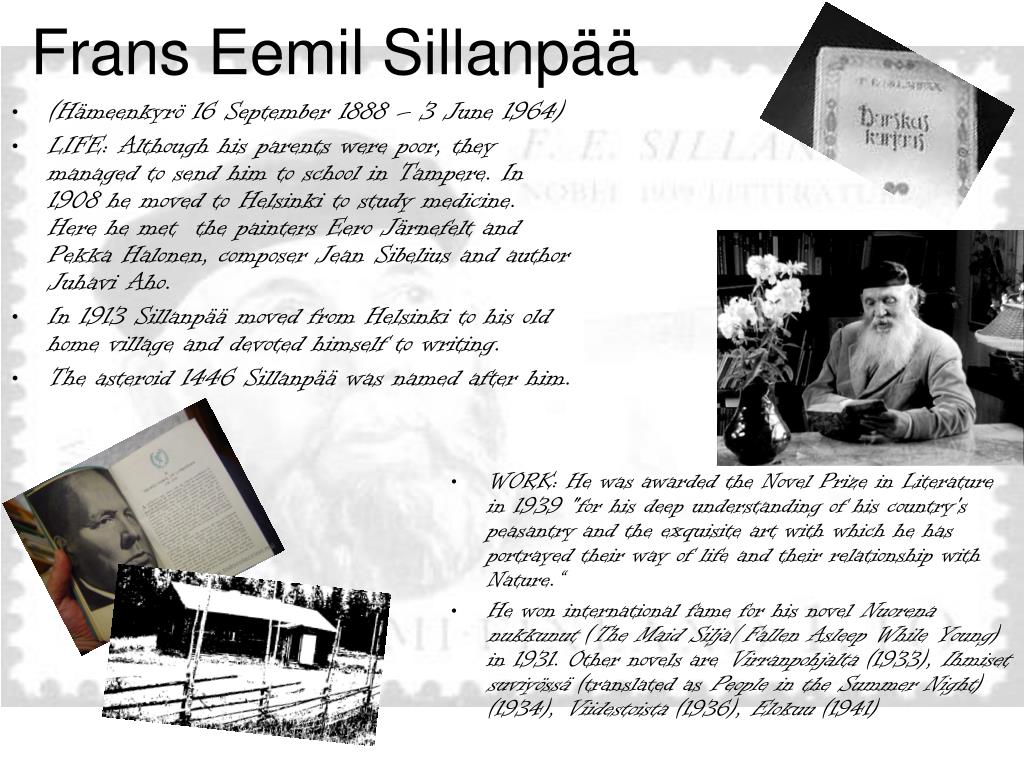 Frans Eemil Sillanpää
• (Hämeenkyrö 16 September 1888 – 3 June 1964)
• LIFE: Although his parents were poor, they
managed to send him to school in Tampere. In
1908 he moved to Helsinki to study medicine.
Here he met the painters Eero Järnefelt and
Pekka Halonen, composer Jean Sibelius and author
Juhavi Aho.
• In 1913 Sillanpää moved from Helsinki to his old
home village and devoted himself to writing.
• The asteroid 1446 Sillanpää was named after him.
F. E. SILLAN
NOBEL 1939 LITTERATU
• WORK: He was awarded the Novel Prize in Literature
in 1939 "for his deep understanding of his country's
peasantry and the exquisite art with which he has
portrayed their way of life and their relationship with
Nature.“
• He won international fame for his novel Nuorena
nukkunut (The Maid Silja/ Fallen Asleep While Young)
in 1931. Other novels are Virranpohjalta (1933), Ihmiset
suviyössä (translated as People in the Summer Night)
(1934), Viidestoista (1936), Elokuu (1941)